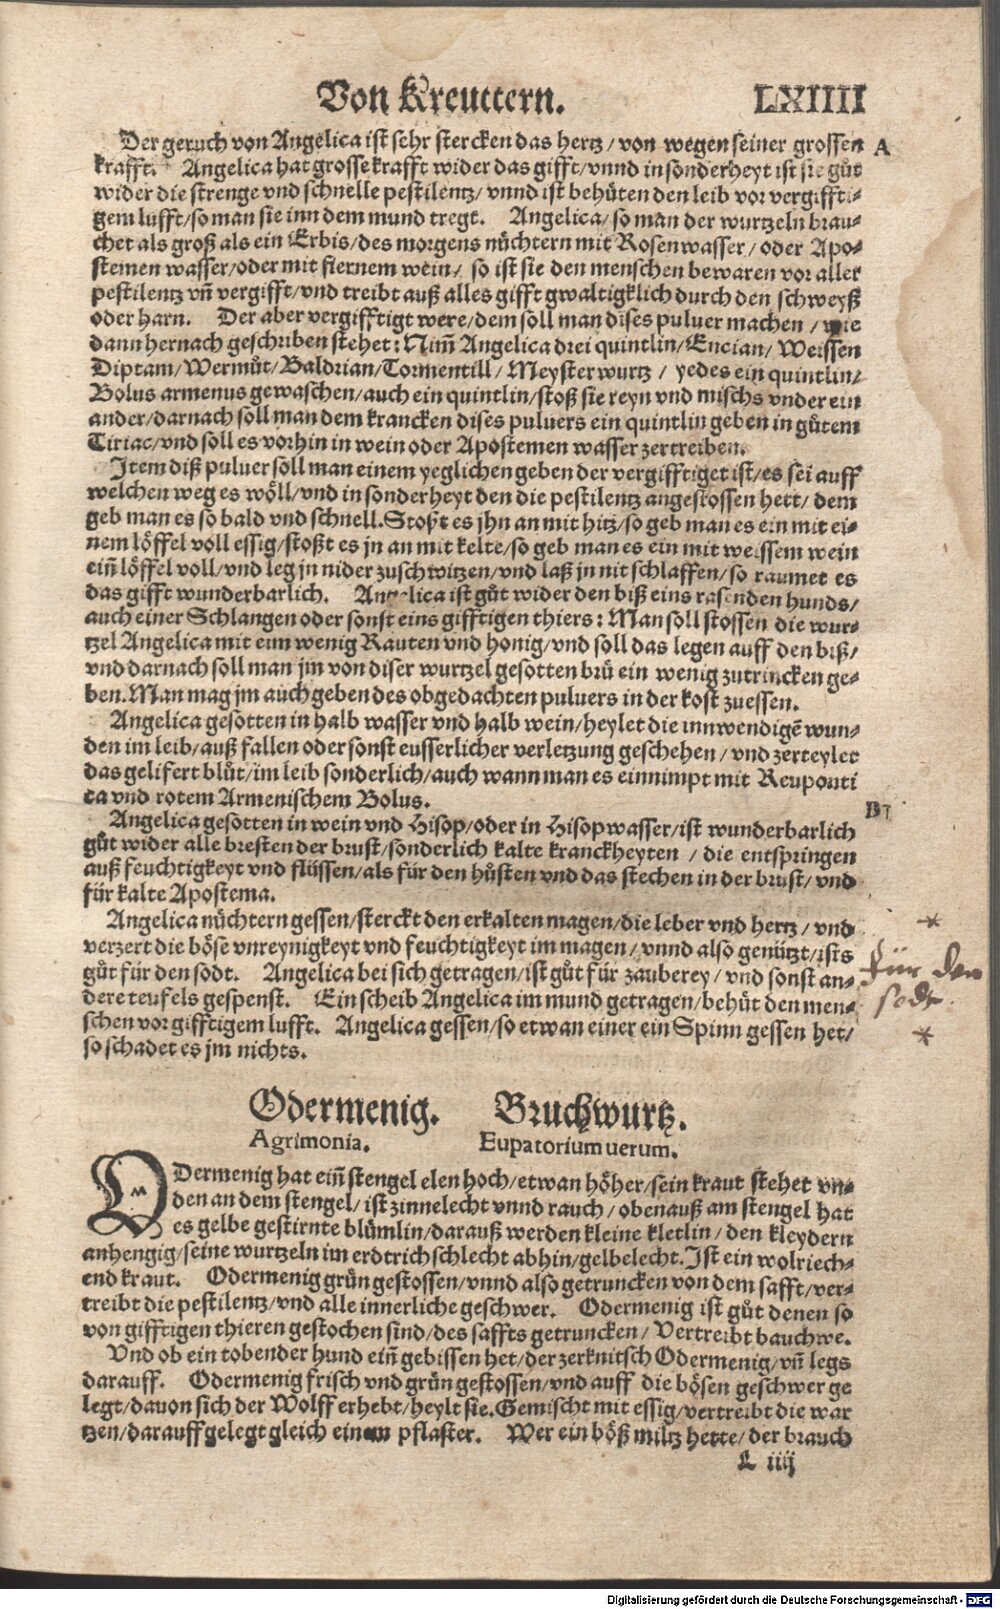 Von Kreuttern. LXIIII
Der geruch von Angelica ist sehr stercken das hertz / von wegen seiner grossen A
krafft. Angelica hat grosse krafft wider das gifft / vnnd in sonderheyt ist sie gůt
wider die strenge vnd schnelle pestilentz / vnnd ist behüten den leib vor vergiffti-
gem lufft / so man sie inn dem mund tregt. Angelica / so man der wurtzeln brau-
chet als groß als ein Erbis / des morgens nüchtern mit Rosenwasser / oder Apo-
stemen wasser / oder mit fiernem wein / so ist sie den menschen bewaren vor aller
pestilentz vn̄ vergifft / vnd treibt auß alles gifft gwaltigklich durch den schweyß
oder harn. Der aber vergifftigt were / dem soll man dises puluer machen / wie
dann hernach geschriben stehet: Nim̄ Angelica drei quintlin / Encian / Weissen
Diptam / Wermůt / Baldrian / Tormentill / Meysterwurtz / yedes ein quintlin /
Bolus armenus gewaschen / auch ein quintlin / stoß sie reyn vnd mischs vnder ein
ander / darnach soll man dem krancken dises puluers ein quintlin geben in gůtem
Tiriac / vnd soll es vorhin in wein oder Apostemen wasser zertreiben.
Item diß puluer soll man einem yeglichen geben der vergifftiget ist / es sei auff
welchen weg es wöll / vnd in sonderheyt den die pestilentz angestossen hett / dem
geb man es so bald vnd schnell. Stoßt es jhn an mit hitz / so geb man es ein mit ei-
nem löffel voll essig / stoßt es jn an mit kelte / so geb man es ein mit weissem wein
ein̄ löffel voll / vnd leg jn nider zuschwitzen / vnd laß jn nit schlaffen / so raumet es
das gifft wunderbarlich. Angelica ist gůt wider den biß eins rasenden hunds /
auch einer Schlangen oder sonst eins gifftigen thiers: Man soll stossen die wur-
tzel Angelica mit eim wenig Rauten vnd honig / vnd soll das legen auff den biß /
vnd darnach soll man jm von diser wurtzel gesotten brü ein wenig zutrincken ge-
ben. Man mag jm auch geben des obgedachten puluers in der kost zuessen.
Angelica gesotten in halb wasser vnd halb wein / heylet die innwendigē wun-
den im leib / auß fallen oder sonst eusserlicher verletzung geschehen / vnd zerteylet
das gelifert blůt / im leib sonderlich / auch wann man es einnimpt mit Reuponti
ca vnd rotem Armenischem Bolus.
B
Angelica gesotten in wein vnd Hisop / oder in Hisopwasser / ist wunderbarlich
gůt wider alle bresten der brust / sonderlich kalte kranckheyten / die entspringen
auß feuchtigkeyt vnd flüssen / als für den hůsten vnd das stechen in der brust / vnd
für kalte Apostema.
Angelica nüchtern gessen / sterckt den erkalten magen / die leber vnd hertz / vnd
verzert die böse vnreynigkeyt vnd feuchtigkeyt im magen / vnnd also genützt / ists
gůt für den sodt. Angelica bei sich getragen / ist gůt für zauberey / vnd sonst an-
dere teufels gespenst. Ein scheib Angelica im mund getragen / behüt den men-
schen vor gifftigem lufft. Angelica gessen / so etwan einer ein Spinn gessen het /
so schadet es jm nichts.
*
für den
sodt
*
Odermenig. Bruchwurtz.
Agrimonia. Eupatorium uerum.
ODermenig hat ein̄ stengel elen hoch / etwan höher / sein kraut stehet vn-
den an dem stengel / ist zinnelecht vnnd rauch / obenauß am stengel hat
es gelbe gestirnte blümlin / darauß werden kleine kletlin / den kleydern
anhengig / seine wurtzeln im erdtrich schlecht abhin / gelbelecht. Ist ein wolriech-
end kraut. Odermenig grün gestossen / vnnd also getruncken von dem safft / ver-
treibt die pestilentz / vnd alle innerliche geschwer. Odermenig ist gůt denen so
von gifftigen thieren gestochen sind / des saffts getruncken / Vertreibt bauchwe.
Vnd ob ein tobender hund ein̄ gebissen het / der zerknitsch Odermenig / vn̄ legs
darauff. Odermenig frisch vnd grün gestossen / vnd auff die bösen geschwer ge
legt / dauon sich der Wolff erhebt / heylt sie. Gemischt mit essig / vertreibt die war
tzen / darauff gelegt gleich einem pflaster. Wer ein böß miltz hette / der brauch
L iiij
Digitalisierung gefördert durch die Deutsche Forschungsgemeinschaft - DFG